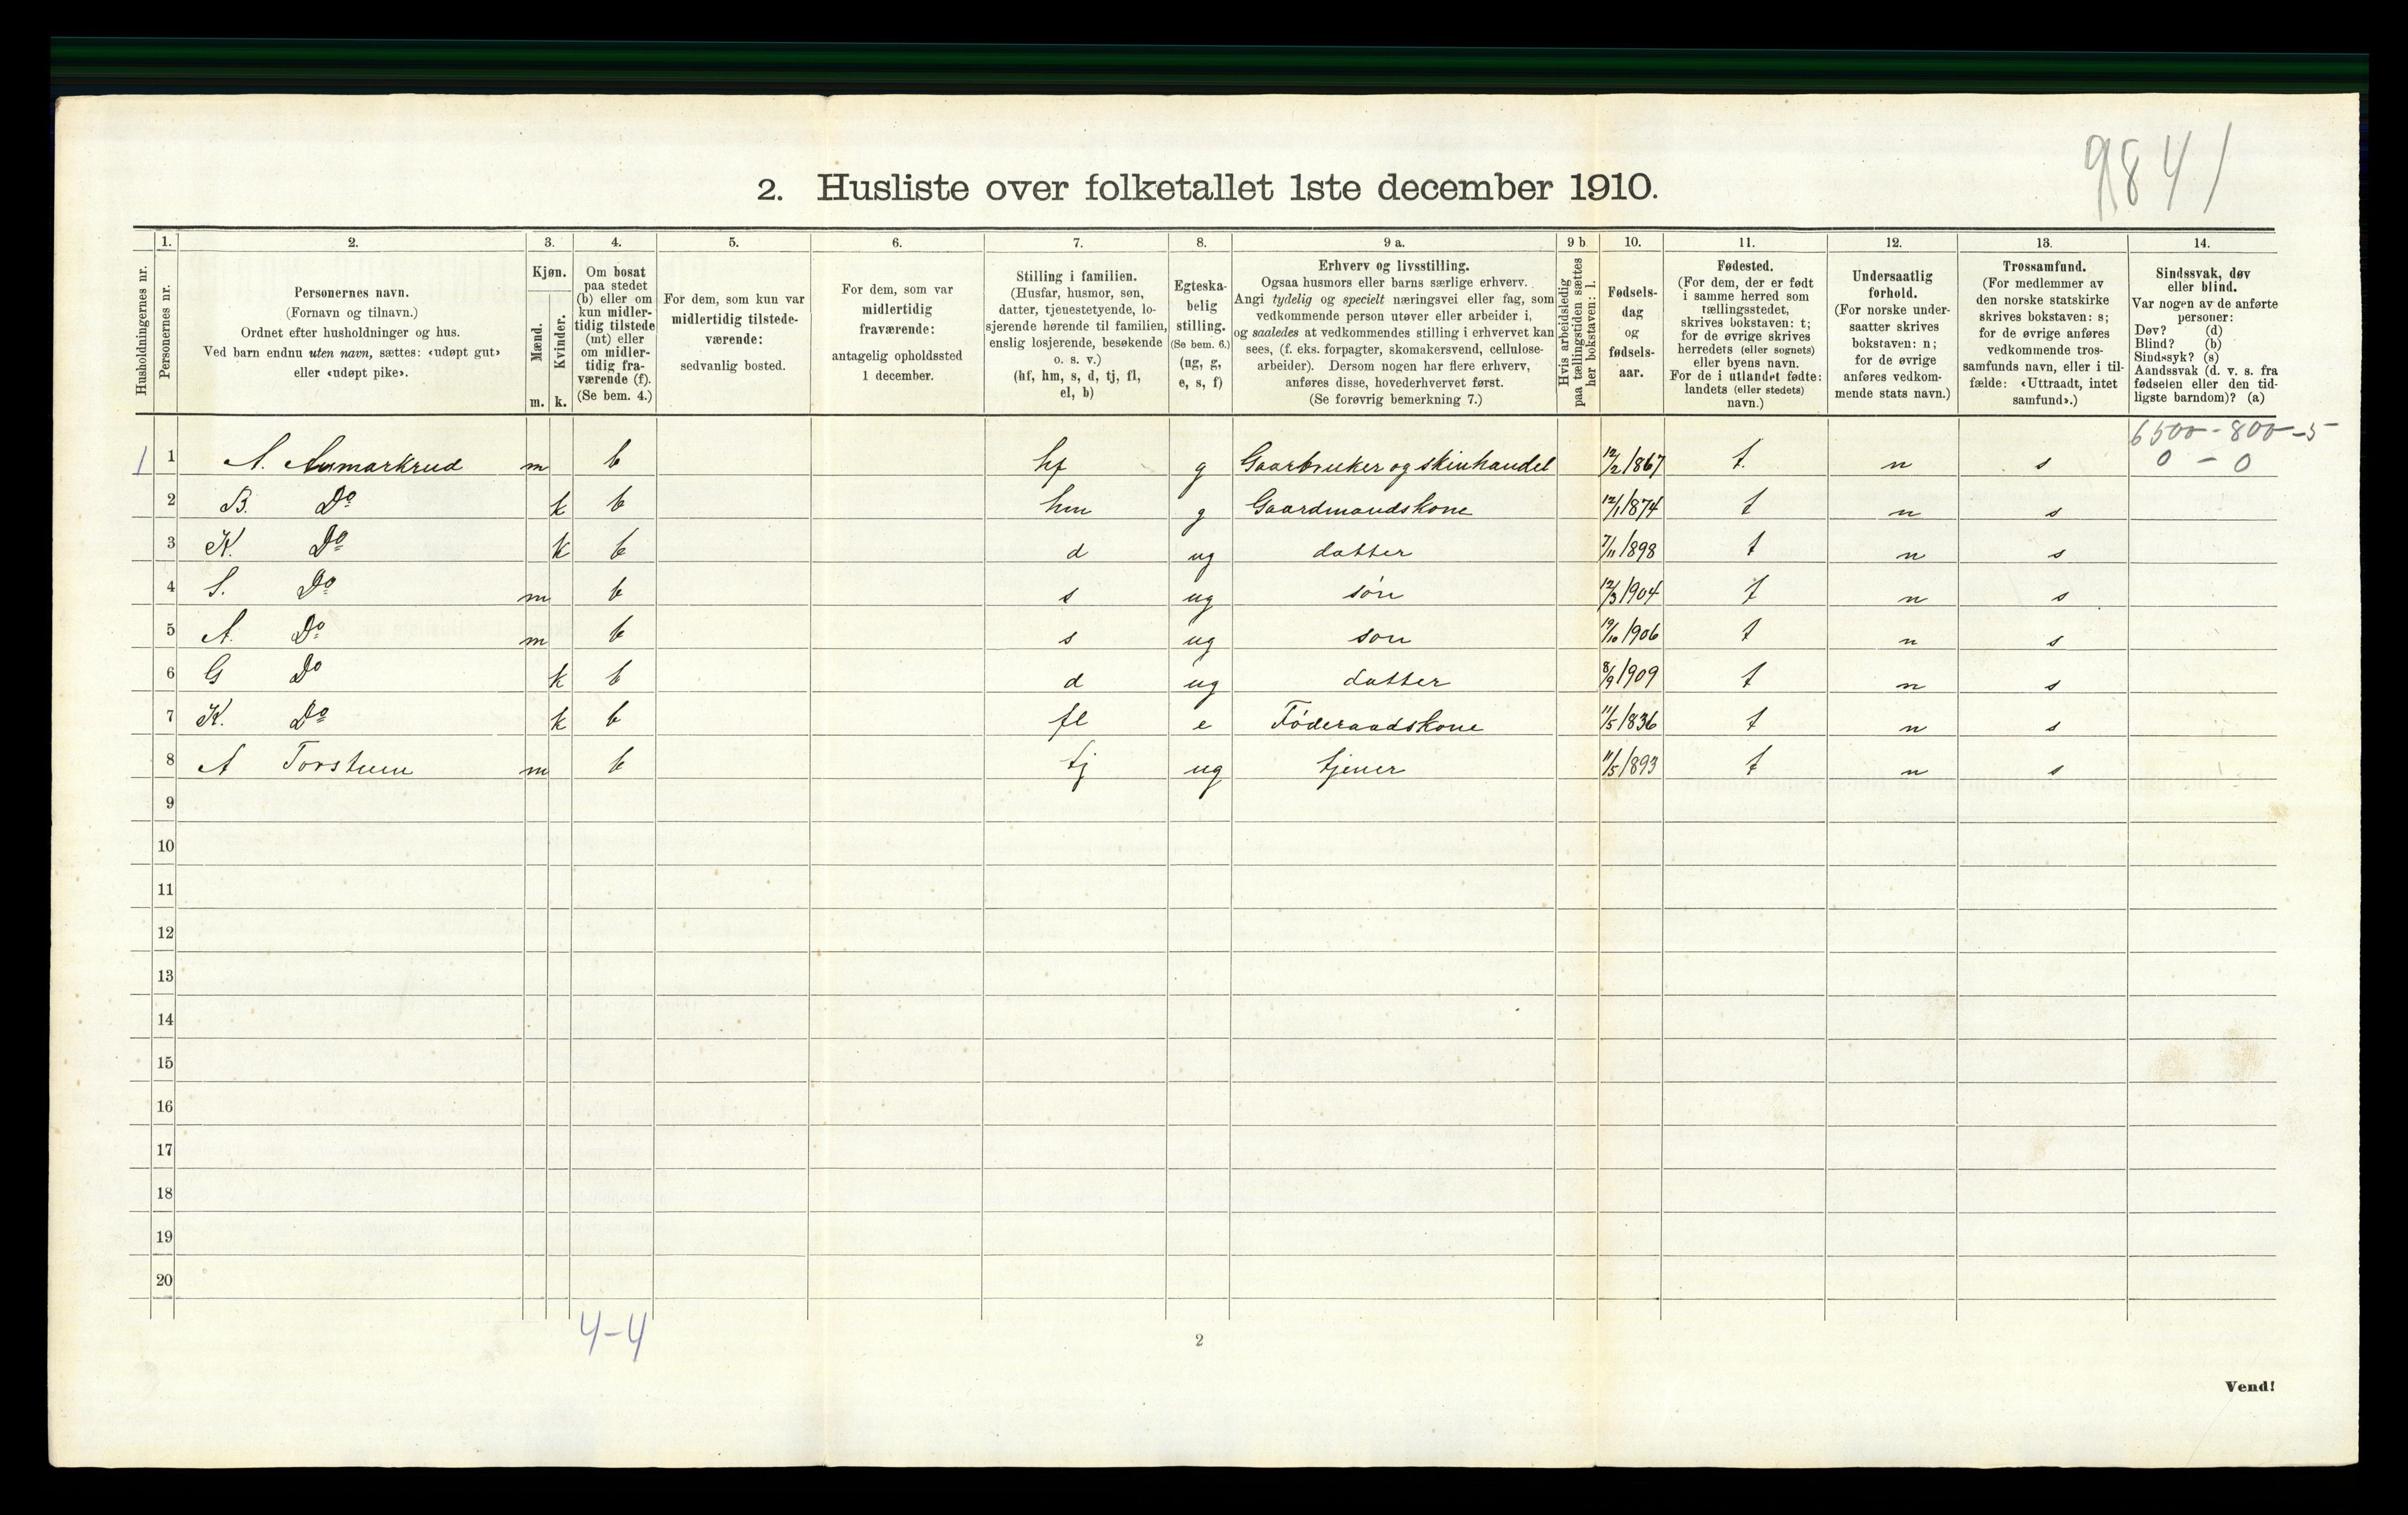 9841
2. Husliste over folketallet 1ste december 1910.
1. 2. 3. 4. 5. 6. 7. 8. 9 a. 9 b 10. 11. 12. 13. 14.
Husholdningernes nr.
Personernes nr.
Personernes navn.
(Fornavn og tilnavn.)
Ordnet efter husholdninger og hus.
Ved barn endnu uten navn, sættes: «udøpt gut»
eller «udøpt pike».
Kjøn.
Mænd.
m.
Kvinder.
k.
Om bosat
paa stedet
(b) eller om
kun midler-
tidig tilstede
(mt) eller
om midler-
tidig fra-
værende (f).
(Se bem. 4.)
For dem, som kun var
midlertidig tilstede-
værende:
sedvanlig bosted.
For dem, som var
midlertidig
fraværende:
antagelig opholdssted
1 december.
Stilling i familien.
(Husfar, husmor, søn,
datter, tjenestetyende, lo-
sjerende hørende til familien,
enslig losjerende, besøkende
o. s. v.)
(hf, hm, s, d, tj, fl,
el, b)
Egteska-
belig
stilling.
(Se bem. 6.)
(ug, g,
e, s, f)
Erhverv og livsstilling.
Ogsaa husmors eller barns særlige erhverv.
Angi tydelig og specielt næringsvei eller fag, som
vedkommende person utøver eller arbeider i,
og saaledes at vedkommendes stilling i erhvervet kan
sees, (f. eks. forpagter, skomakersvend, cellulose-
arbeider). Dersom nogen har flere erhverv,
anføres disse, hovederhvervet først.
(Se forøvrig bemerkning 7.)
Hvis arbeidsledig
paa tællingstiden sættes
her bokstaven: l.
Fødsels-
dag
og
fødsels-
aar.
Fødested.
(For dem, der er født
i samme herred som
tællingsstedet,
skrives bokstaven: t;
for de øvrige skrives
herredets (eller sognets)
eller byens navn.
For de i utlandet fødte:
landets (eller stedets)
navn.)
Undersaatlig
forhold.
(For norske under-
saatter skrives
bokstaven: n;
for de øvrige
anføres vedkom-
mende stats navn.)
Trossamfund.
(For medlemmer av
den norske statskirke
skrives bokstaven: s;
for de øvrige anføres
vedkommende tros-
samfunds navn, eller i til-
fælde: «Uttraadt, intet
samfund».)
Sindssvak, døv
eller blind.
Var nogen av de anførte
personer:
Døv? (d)
Blind? (b)
Sindssyk? (s)
Aandssvak (d. v. s. fra
fødselen eller den tid-
ligste barndom)? (a)
6500-800-5
0 - 0
1 1 A. Aumarkrud m b hf g Gaarbruker og skinhandel 12/2 1867 t. n s
2 B. Do k b hm g Gaardmandskone 12/1 1874 t n s
3 K. Do k b d ug datter 7/11 1898 t n s
4 S. Do m b s ug søn 12/3 1904 t n s
5 A. Do m b s ug son 19/10 1906 t n s
6 G Do k b d ug datter 8/9 1909 t n s
7 K. Do k b fl e Føderaadskone 11/5 1836 t n s
8 A m b tj ug tjener 11/5 1893 t n s
9
10
11
12
13
14
15
16
17
18
19
20
4-4
2
Vend!